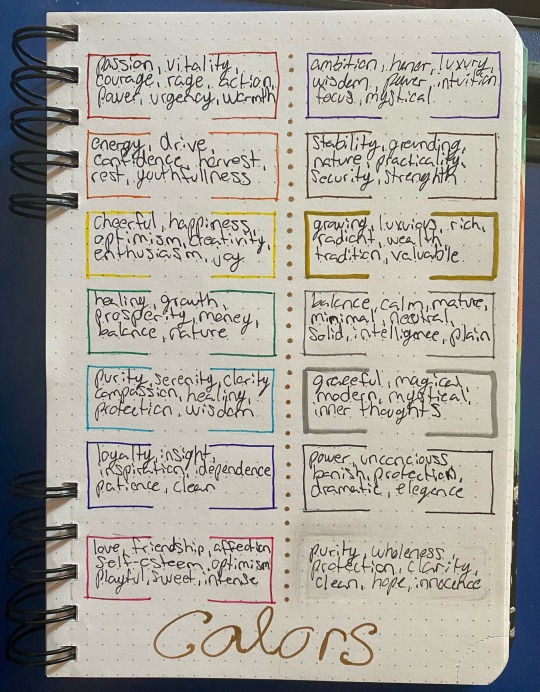 passion, vitality,
courage, rage, action,
power, urgency, warmth
energy, drive,
confidence, harvest,
rest, youthfullness
cheerful, happiness,
optimism, creativity,
enthusiasm, joy
healing, growth,
prosperity, money,
balance, nature
purity, serenity, clarity
compassion, healing,
protection, wisdom
loyalty, insight,
inspiration, dependence
patience, clean
love, friendship, affection
self-esteem, optimism
playful, sweet, intense
ambition, honor, luxury,
wisdom, power, intuition
focus, mystical
stability, grounding,
nature, practicality,
security, strenghth
growing, luxuious, rich,
radiant, wealth
tradition, valuable
balance, calm, mature,
minimal, neutral,
solid, intelligence, plain
graceful, magical,
modern, mystical,
inner thoughts
power, unconciouss
banish, protection,
dramatic, elegence
purity, wholeness
protection, clarity,
clean, hope, innocence
Colors